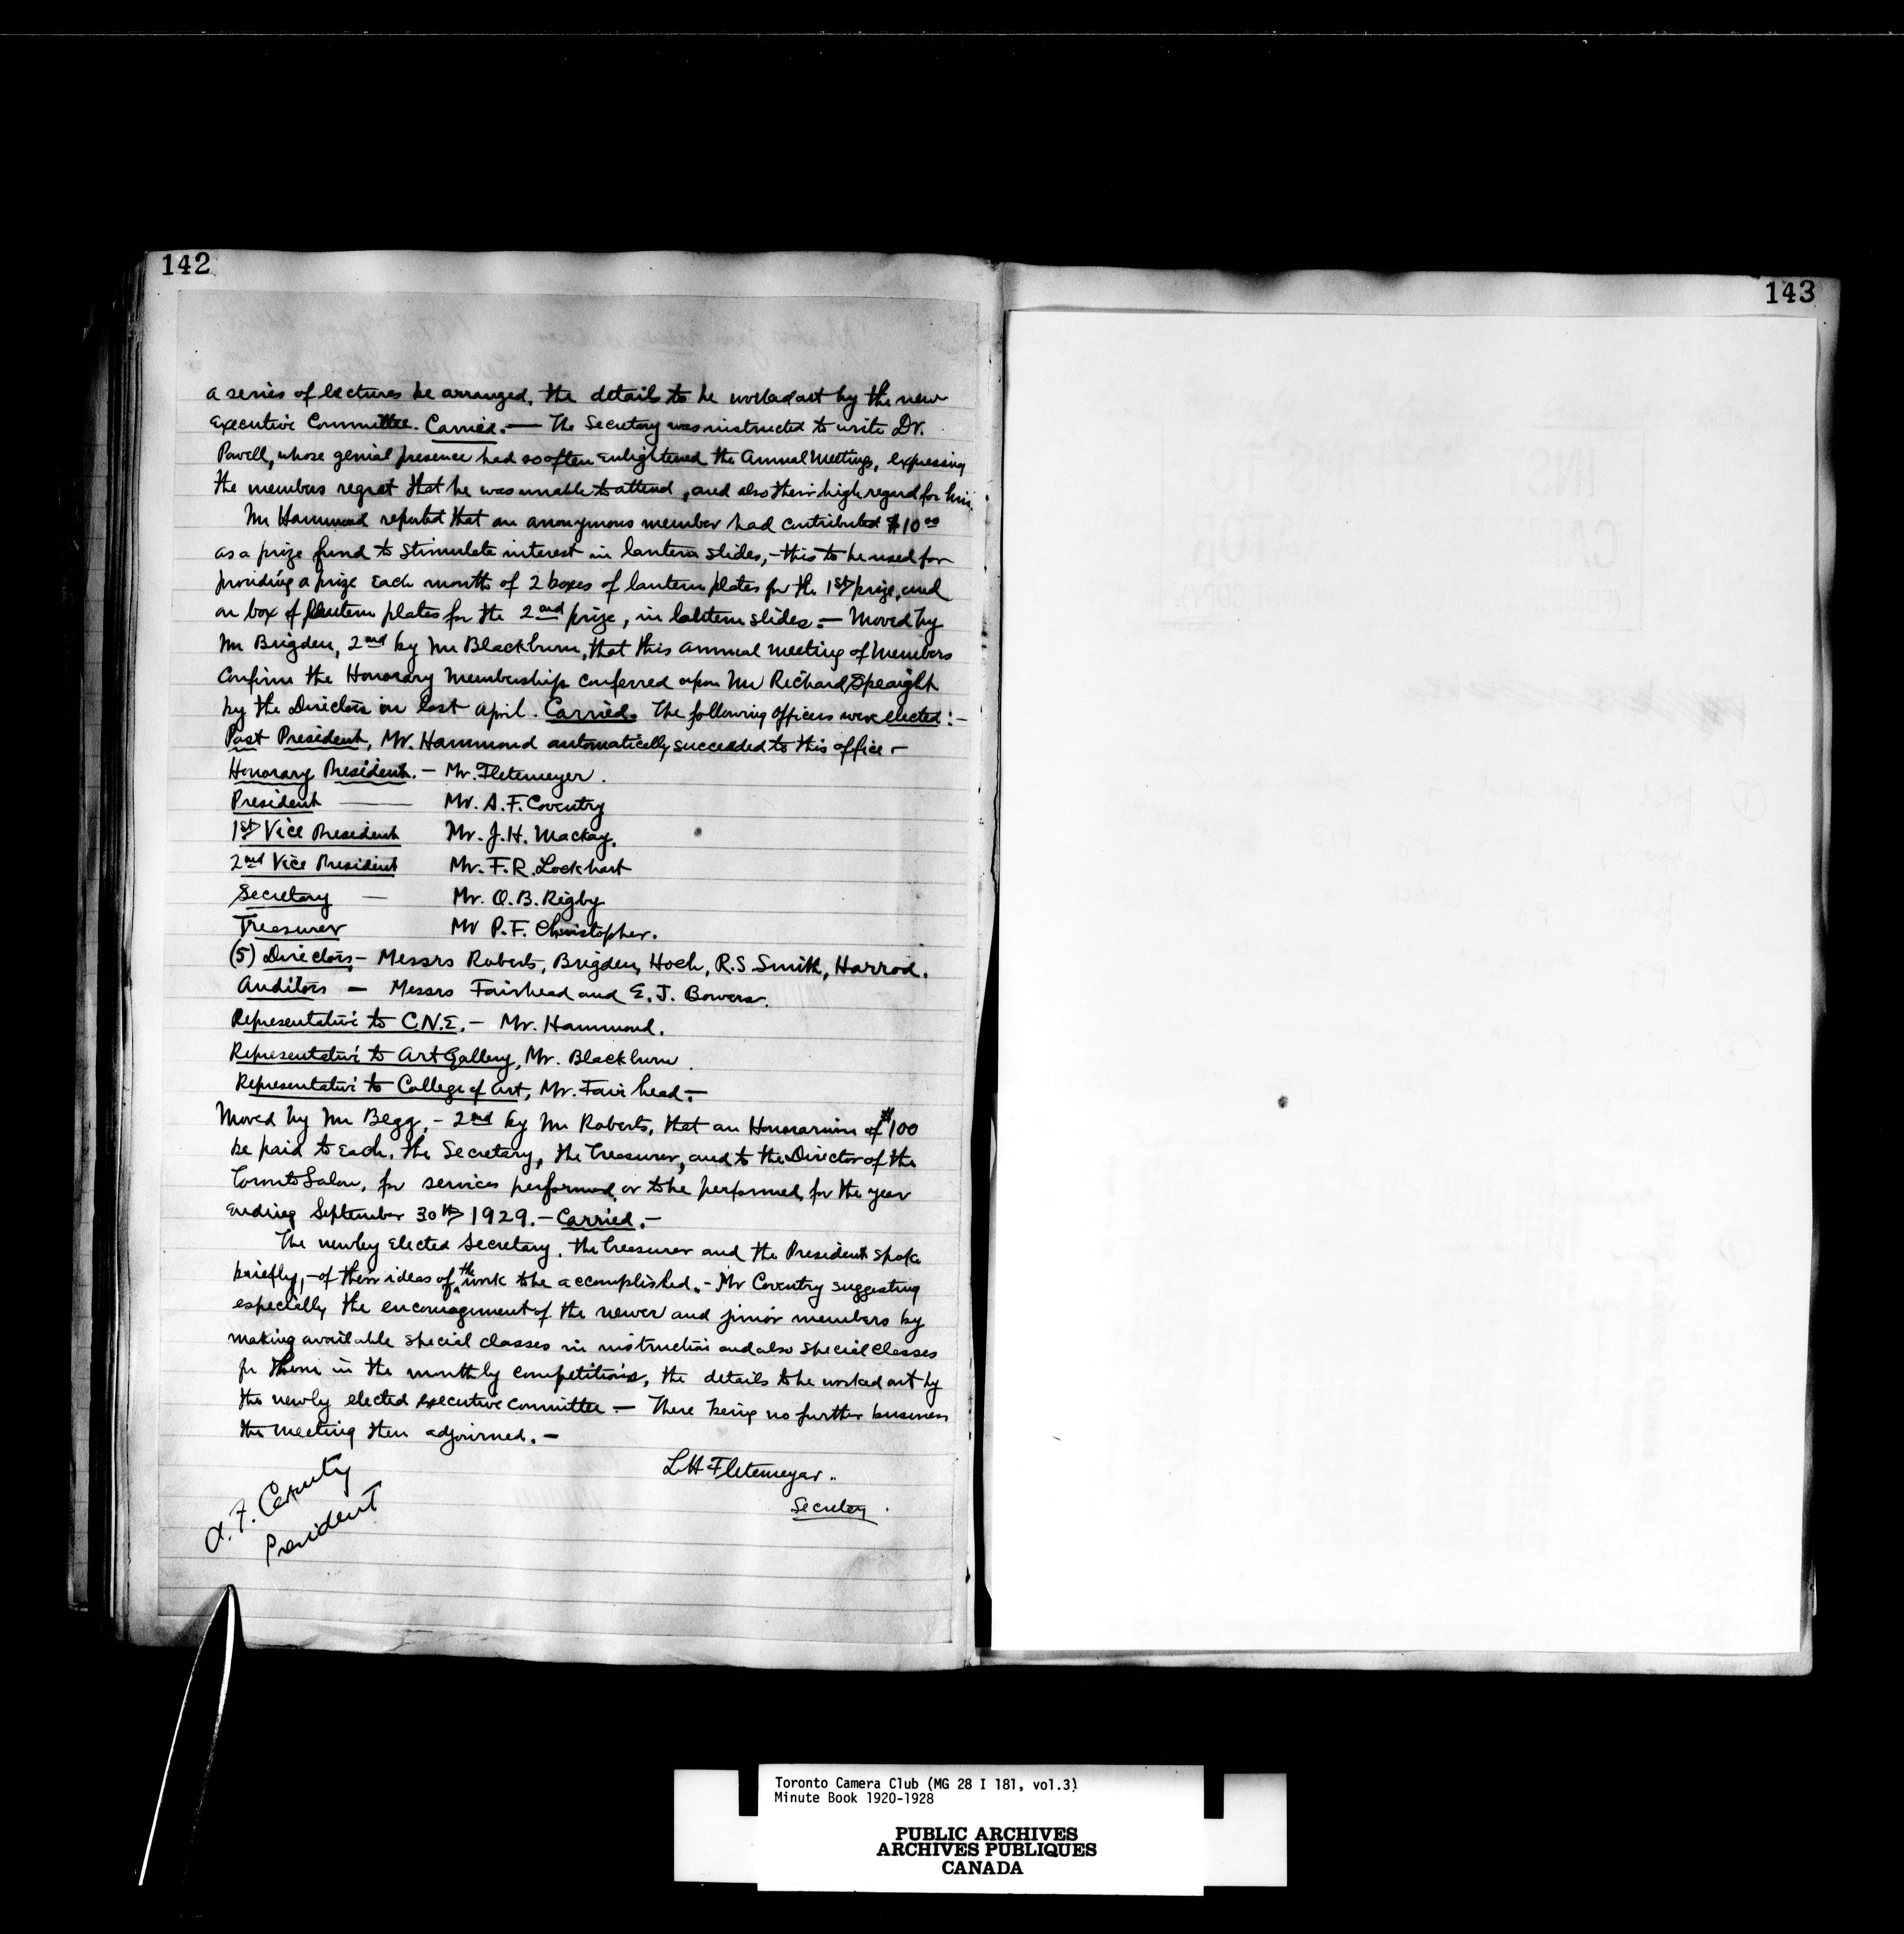 142
a series of lectures be arranged, the details to be worked out by the new
Executive Committee. Carried. — The Secretary was instructed to write Dr.
Powell, whose genial presence had so often enlightened the Annual Meetings, expressing
the members regret that he was unable to attend, and also their high regard for him.
Mr Hammond reported that an anonymous member had contributed $10 00
as a prize fund to stimulate interest in lantern slides, - this to be used for
providing a prize each month of 2 boxes of lantern plates for the 1st prize, and
on box of lantern plates for the 2nd prize, in lantern slides. — Moved by
Mr Brigden, 2nd by Mr Blackburn, that this annual meeting of Members
Confirm the Honorary Membership conferred upon Mr Richard Speaight
by the Directors in last April. Carried. The following officers were elected: -
Past President, Mr. Hammond automatically succeeded to this office -
Honorary President. - Mr. Fletemeyer.
President — Mr. A. F. Coventry
1st Vice President Mr. J. H. Mackay.
2nd Vice President Mr. F. R. Lockhart
Secretary — Mr. O. B. Rigby
Treasurer Mr P. F. Christopher.
(5) Directors - Messrs Roberts, Brigden, Hoch, R. S. Smith, Harrod.
Auditors — Messrs Fairhead and E. J. Bowers.
Representative to C.N.E. - Mr. Hammond.
Representative to Art Gallery, Mr. Blackburn.
Representative to College of Art, Mr. Fairhead. -
Moved by Mr Begg, - 2nd by Mr Roberts, that an Honorarium of $100
be paid to each, the Secretary, the Treasurer, and to the Director of the
Toronto Salon, for services performed, or to be performed, for the year
ending September 30th 1929. - Carried. -
The newley elected Secretary, the Treasurer and the President spoke
briefly, - of their ideas of the work to be accomplished. - Mr Coventry suggesting
especially the encouragement of the newer and junior members by
making available special classes in instruction and also special classes
for them in the monthly competitions, the details to be worked out by
the newly elected executive committee — There being no further business
the meeting then adjourned. -
L H Fletemeyer.
Secretary.
A. F. Coventry
President
143
Toronto Camera Club (MG 28 I 181, vol.3)
Minute Book 1920-1928
PUBLIC ARCHIVES
ARCHIVES PUBLIQUES
CANADA